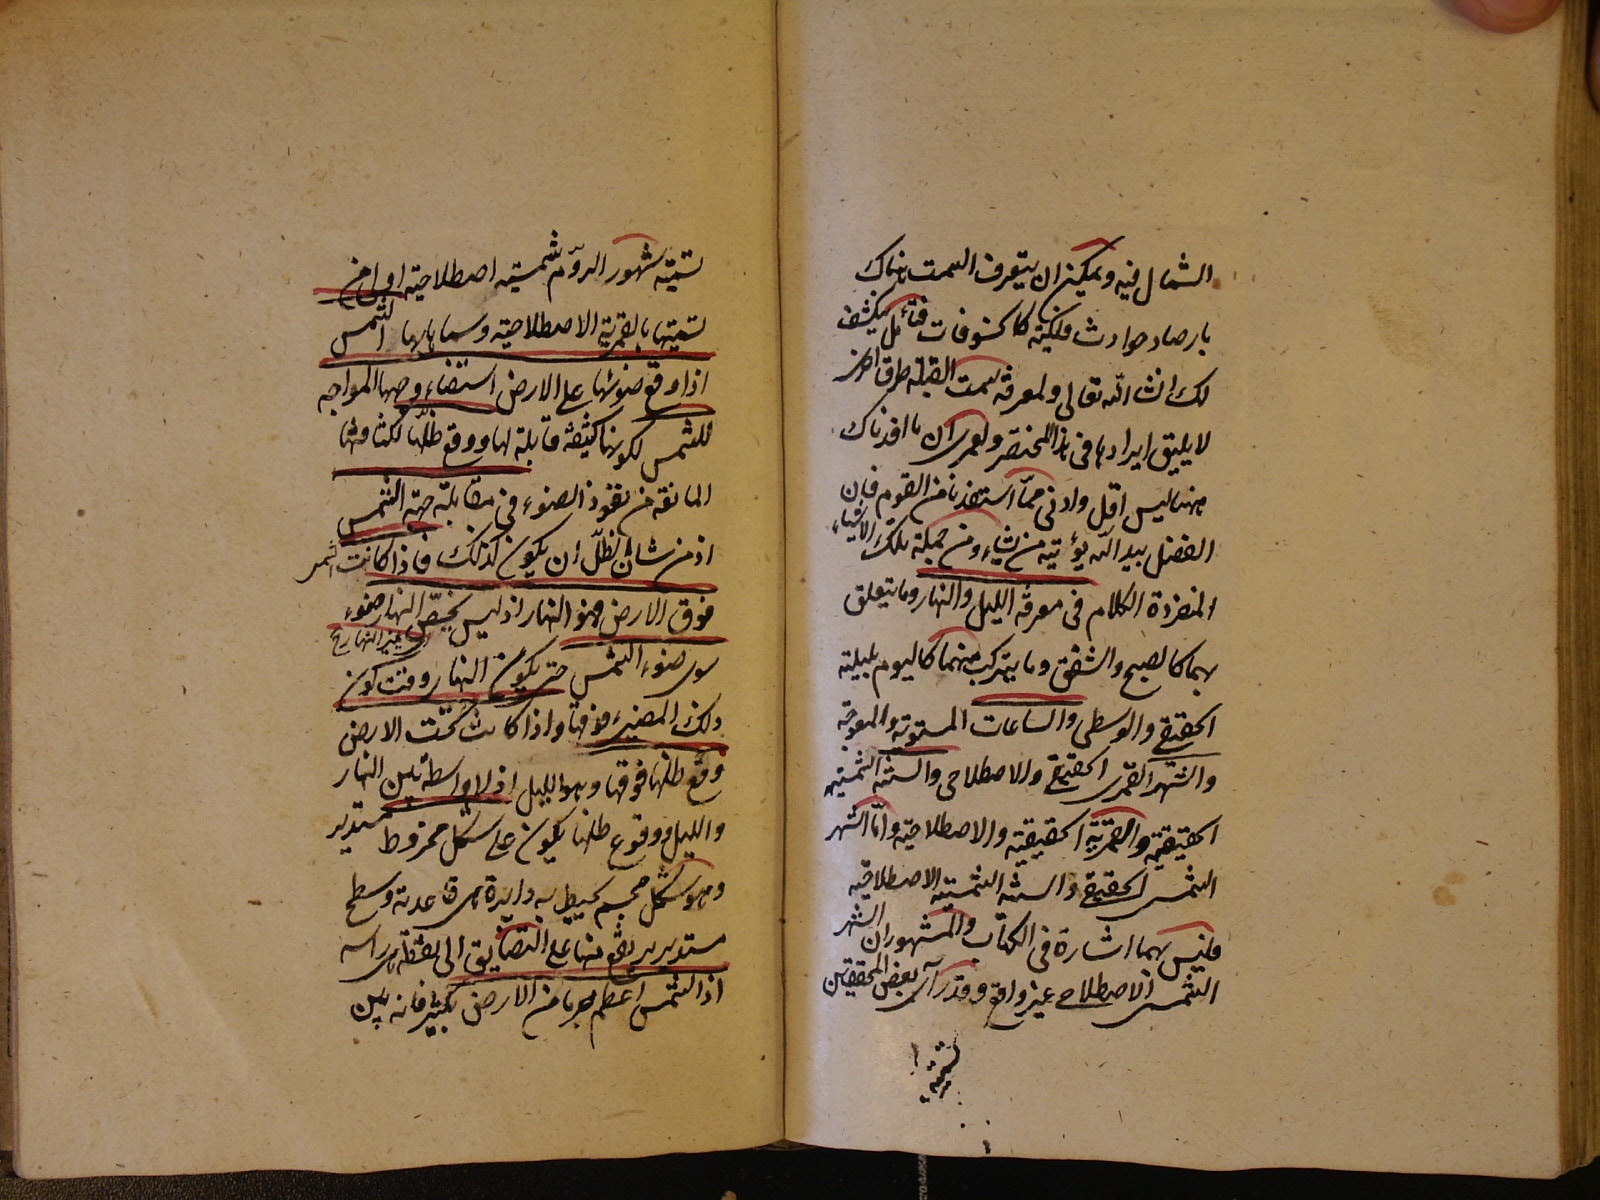 الشمال فيه ويمكن ان يتعرف السمت هناك
بارصاد حوادث فلكية كالكسوفات فتأمل ينكشف
لك انشاء الله تعالى ولمعرفة سمت القبلة طرق اخر
لا يليق ايرادها فى هذا المختصر ولعمرى ان ما افدناك
ههنا ليس اقل وادنى مما استفدنا من القوم فان
الفضل بيد الله يؤتيه من يشاء ومن جملة تلك الاشياء
المنفردة الكلام فى معرفة الليل والنهار وما يتعلق
بهما كالصبح والشفق وما يتركب منهما كاليوم بليلته
الحقيقى والوسطى والساعات المستوية والمعوجة
والشهر القمرى الحقيقى والاصطلاحى والسنة الشمسية
الحقيقية والقمرية الحقيقية والاصطلاحية واما الشهر
الشمسى الحقيقى والسنة الشمسية الاصطلاحية
فليس بهما اشارة فى الكتاب والمشهور ان الشهر
الشمسى الاصطلاحى غير واقع وقد رأى بعض المحققين
تسمية
تسمية شهور الروم شمسية اصطلاحية اولى من
تسميتها بالقمرية الاصطلاحية وسماها بها الشمس
اذا وقع ضوئها على الارض استضاء وجهها المواجه
للشمس لكونها كثيفة قابلة لها ووقع ظلها لكثافتها
المانعة من نفوذ الضوء فى مقابلة جهة الشمس
اذ من شان الظل ان يكون كذلك فاذا كانت الشمس
فوق الارض فهو النهار اذ ليس يخص النهار ضوء
اى غير النهار
سوى ضوء الشمس حتى يكون النهار وقت كون
ذلك المضىء فوقها واذا كانت تحت الارض
وقع ظلها فوقها وهو الليل اذ لا واسطة بين النهار
والليل ووقوع ظلها يكون على شكل مخروط مستدير
وهو شكل مجسم يحيط به دايرة هى قاعدته وسطح
مستدير يرتفع منها على التضايق الى نقطة هى راسه
اذ الشمس اعظم جرما من الارض بكثير فانه بين